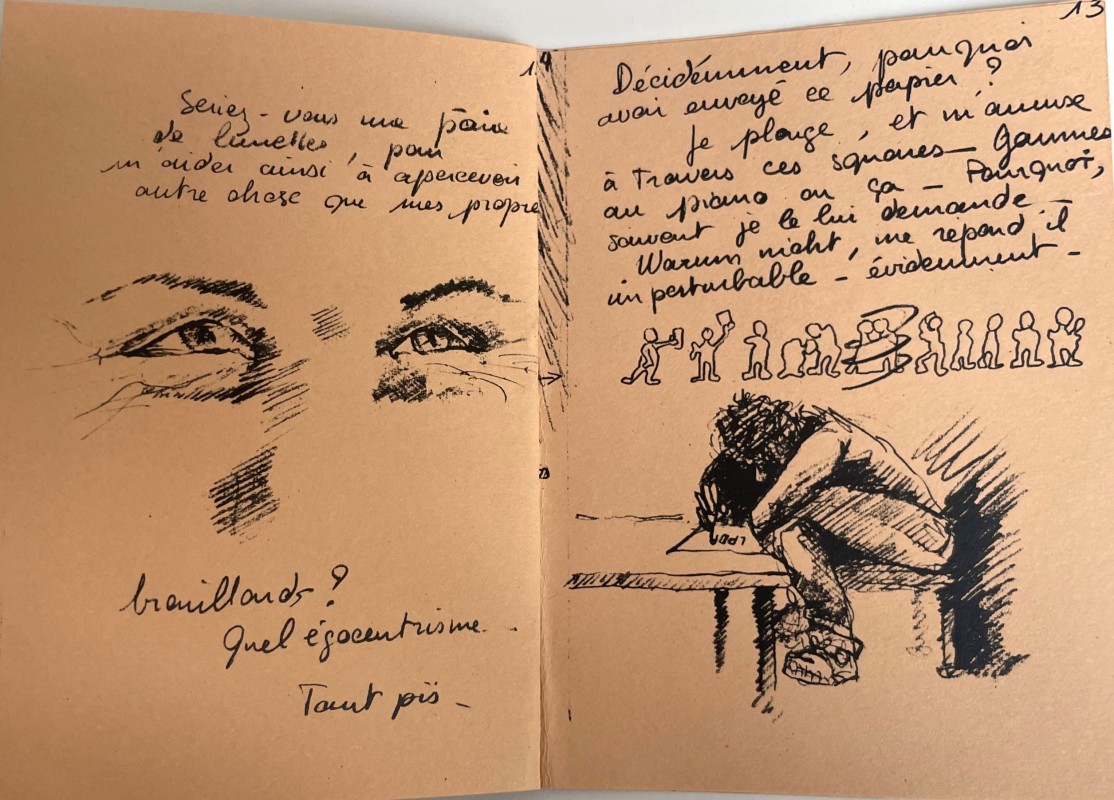 14
Seriez-vous une paire
de lunettes, pour
m'aider ainsi, à apercevoir
autre chose que mes propre
brouillards ?
Quel égocentrisme.
Tant pis -
13
Décidémment, pourquoi
avoir envoyé ce papier ?
Je plonge, et m'amuse
à travers ces squares - Gammes
au piano ou ça - Pourquoi,
souvent je le lui demande -
Warum nicht, me répond il
imperturbable - évidemment -